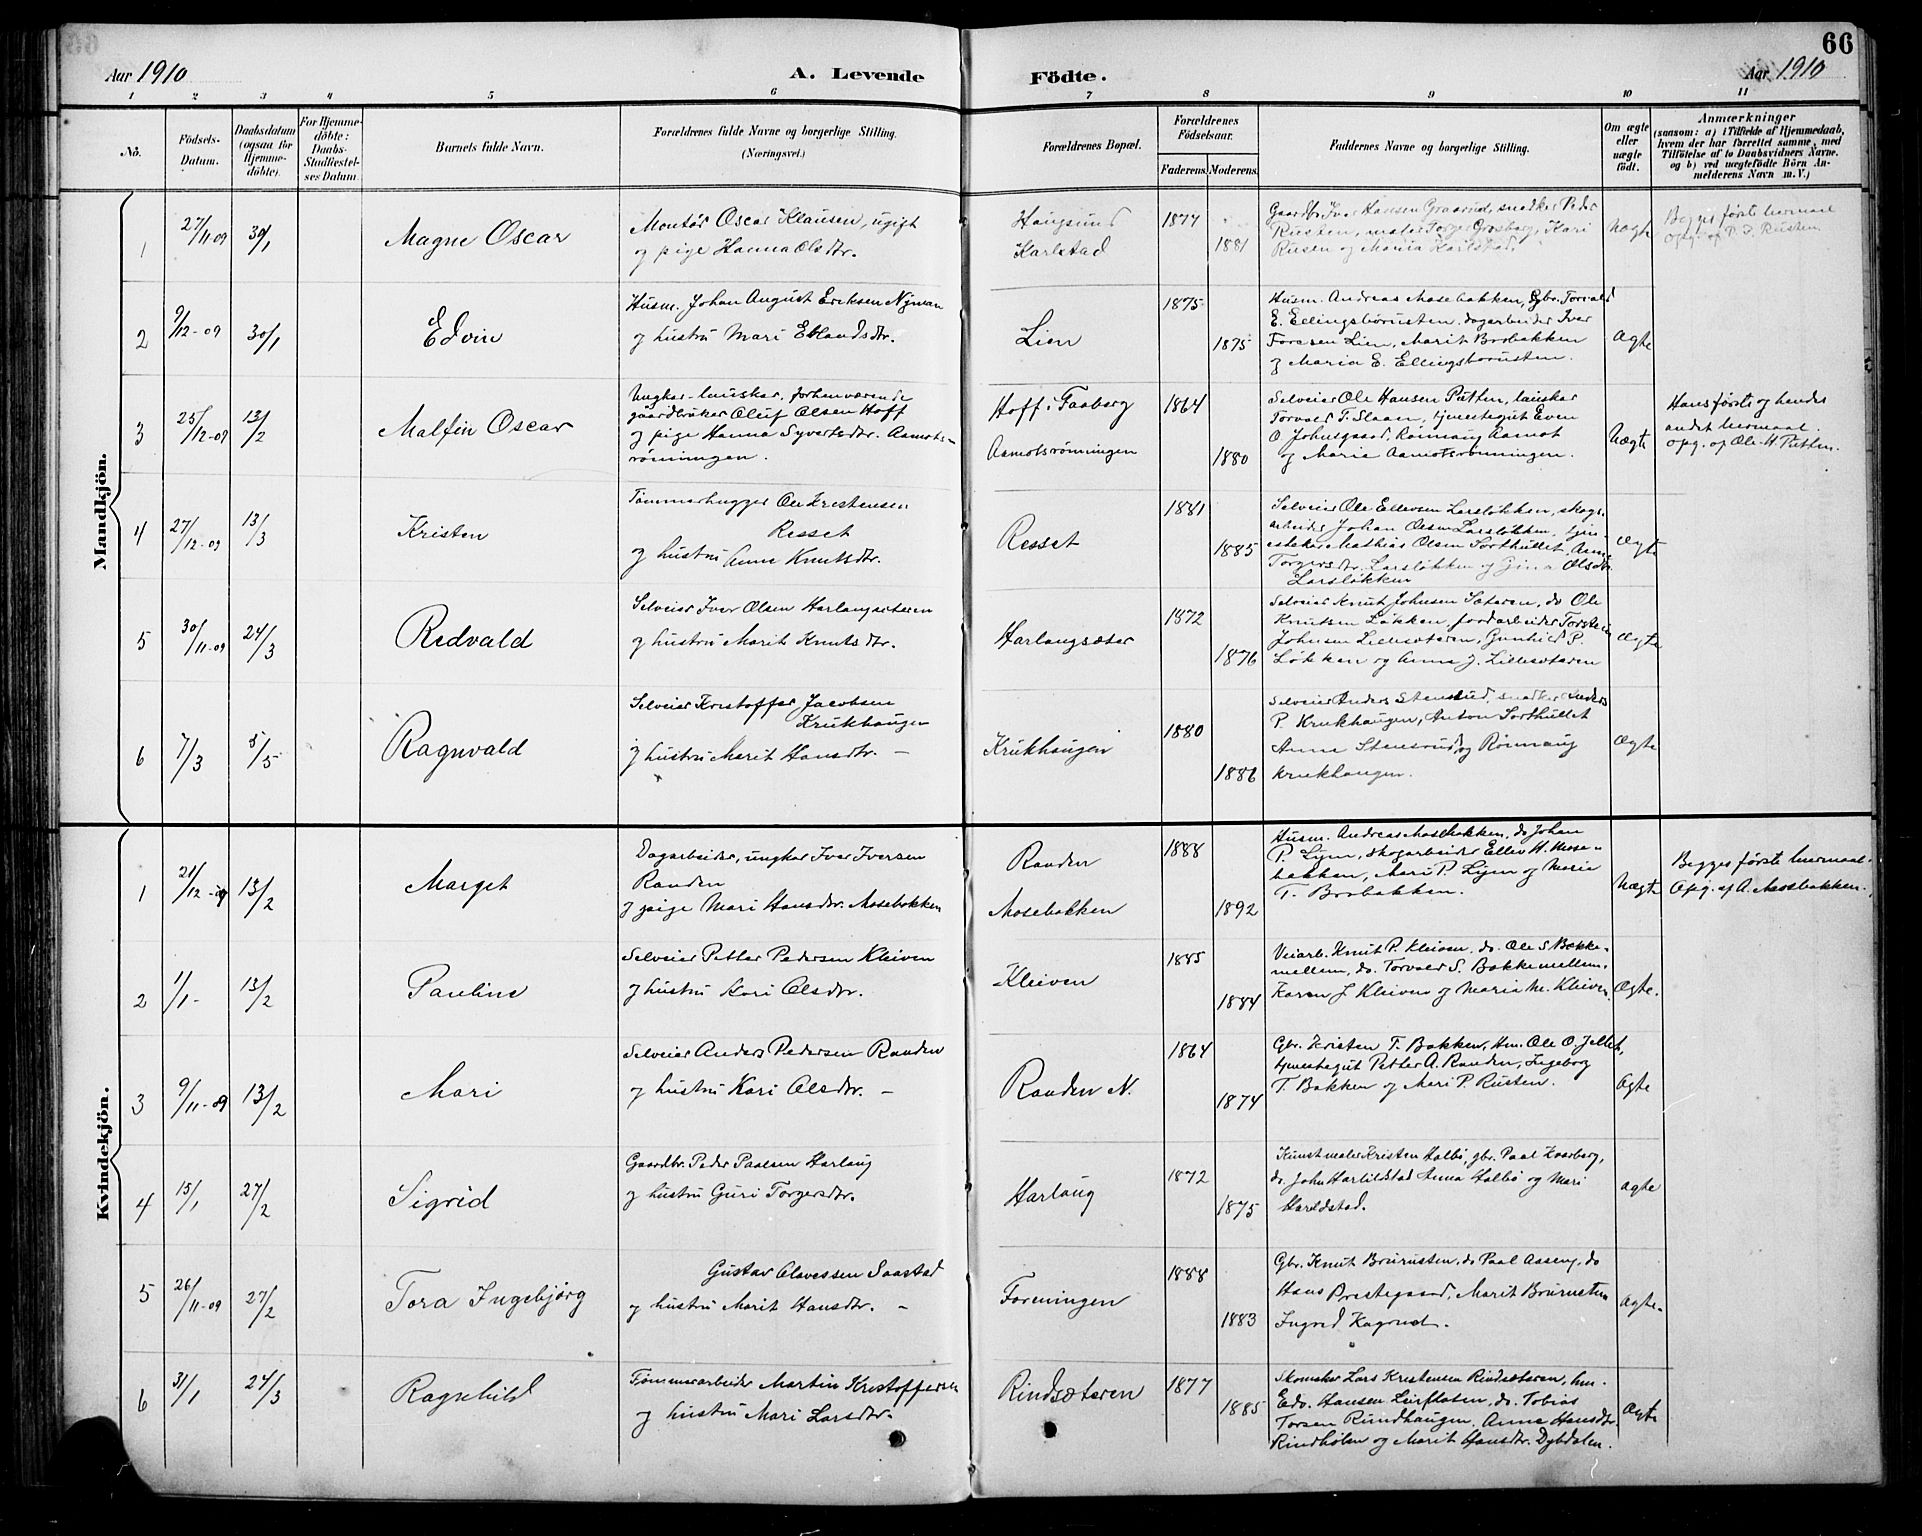 66
Aar 1910
A. Levende Födte.
Aar 1910
1 2 3 4 5 6 7 8 9 10 11
No.
Födsels-Datum.
Daabsdatum (ogsaa for Hjemme-döbte).
For Hjemme-döbte: Daabs-Stadfæstel-ses Datum.
Barnets fulde Navn.
Forældrenes fulde Navne og borgerlige Stilling. (Næringsvei.)
Forældrenes Bopæl.
Forældrenes Födselsaar.
Faderens. Moderens.
Faddernes Navne og borgerlige Stilling.
Om ægte eller uægte födt.
Anmærkninger
(saasom: a) i Tilfælde af Hjemmedaab, hvem der har forrettet samme, med Tilföielse af to Daabsvidners Navne. og b) ved uægtefödte Börn An-melderens Navn m. V.)
Mandkjön.
1 27/11-09 30/1 Magne Oscar
Montør Oscar Klausen, ugift
og pige Hanna Olsdtr.
Haugsund
Karlstad
1877
1881
Gaardbr. Iver Hansen Graarud, snedker Peder
Rusten, maler Torger Grosberg, Kari
Rusen og Maria Karlstad.
Uægte
Begges første leiermaal
opg. af P. I. Rusten
2 9/12-09 30/1 Edvin
Husm. Johan August Eriksen Nyman
og hustru Mari Erlandsdtr.
Lien
1875
1875
Husm. Andreas Mosebakken, Gbr. Torvald
E. Ellingsbørusten, dagarbeider Iver
Toresen Lien, Marit Brobakken
og Maria E. Ellingsborusten.
Ægte
3 25/12-09 13/2 Malfin Oscar
Ungkar-lauskar, forhenværende
gaardbruker Oluf Olsen Hoff
og pige Hanna Syvertsdtr. Aamots-
rønningen.
Hoff i Faaberg
Aamotsrønningen
1864
1880
Selveier Ole Hansen Putten, lauskar
Torvald T. Slaan, tjenestegut Even
O. Johnsgaard, Rønnaug Aamot
og Maria Aamotsrønningen.
Uægte
Hans første og hendes
andet leiermaal.
Opg. af Ole H. Putten.
4 27/12-09 13/3 Kristen
Tømmerhugger Ole Kristensen
Resset
og hustru Anne Knutsdtr.
Resset
1881
1885
Selveier Ole Ellevsen Larsløkken, skogs-
arbeider Johan Olsen Larsløkken, tjen-
estekar Mathias Olsen Sorthullet, Anne
Torgersdtr. Larsløkken og Olsdtr.
Larsløkken
Ægte
5 30/11-09 24/3 Redvald
Selveier Iver Olsen Harlangseteren
og hustru Marit Knutsdtr.
Harlangsæter
1872
1876
Selveier Knut Johnsen Sæteren, do Ole
Knutsen Løkken, jordarbeider Torstein
Johnsen Lillesæteren, Gunhild P.
Løkken og Anne J. Lillesæteren
Ægte
6 7/3 5/5 Ragnvald
Selveier Kristoffer Jacobsen
Krukhaugen
og hustru Marit Hansdtr. –
Krukhaugen
1880
1886
Selveier Anders Stensrud, snedker Anders
P. Krukhaugen, Anton Sorthullet
Anne Stensrud og Rønnaug
Krukhaugen.
Ægte
Kvindekjön.
1 21/12-09 13/2 Marget
Dagarbeider, ungkar Iver Iversen
Randen
og pige Mari Hansdtr. Mosebakken
Randen
Mosebakken
1888
1892
Husm. Andreas Mosebakken, do Johan
P. Lyen, skogarbeider Ellev H. Mose-
bakken, Mari P. Lyen og Marie
T. Brobakken.
Uægte
Begges første leiermaal.
Opg. af A. Mosebakken.
2 1/1- 13/2 Pauline
Selveier Petter Pedersen Kleiven
og hustru Kari Olsdtr.
Kleiven
1885
1884
Veiarb. Knut P. Kleiven, do. Ole S. Bakke-
mellem, do. Torvald S. Bakkemellem,
Karen J. Kleiven og Maria M. Kleiven.
Ægte.
3 9/11-09 13/2 Mari
Selveier Anders Pedersen Randen
og hustru Kari Olsdtr. –
Randen N.
1864
1874
Gbr. Kristen T. Bakken, Hm. Ole O. Jellet,
tjenestegut Petter A. Randen, Ingeborg
T. Bakken og Mari P. Rusten.
Ægte
4 15/1 27/2 Sigrid
Gaardbr. Peder Paalsen Harlaug
og hustru Guri Torgersdtr.
Harlaug
1872
1875
Kunstmaler Kristen Holbø, gbr. Paal Kvarberg,
do. John Harildstad Anna Holbø og Mari
Harildstad.
Ægte
5 26/11-09 27/2 Tora Ingebjørg
Gustav Olavessen Saastad
og hustru Marit Hansdtr. –
Foreningen
1888
1883
Gbr. Knut Brurusten, do Paal Aaseng, do
Hans Prestegaard, Marit Brurusten
Ingrid Kagrud.
Ægte.
6 31/1 24/3 Ragnhild
Tømmerarbeider Martin Kristoffersen
og hustru Mari Larsdtr.
Rindsæteren
1877
1885
Skomaker Lars Kristensen Rindsæteren, hm.
Edv. Hansen Leirflaten, do. Tobias
Torsen Rundhaugen, Anne Hansdtr.
Rindhølen og Marit Hansdtr. Dybdalen.
Ægte